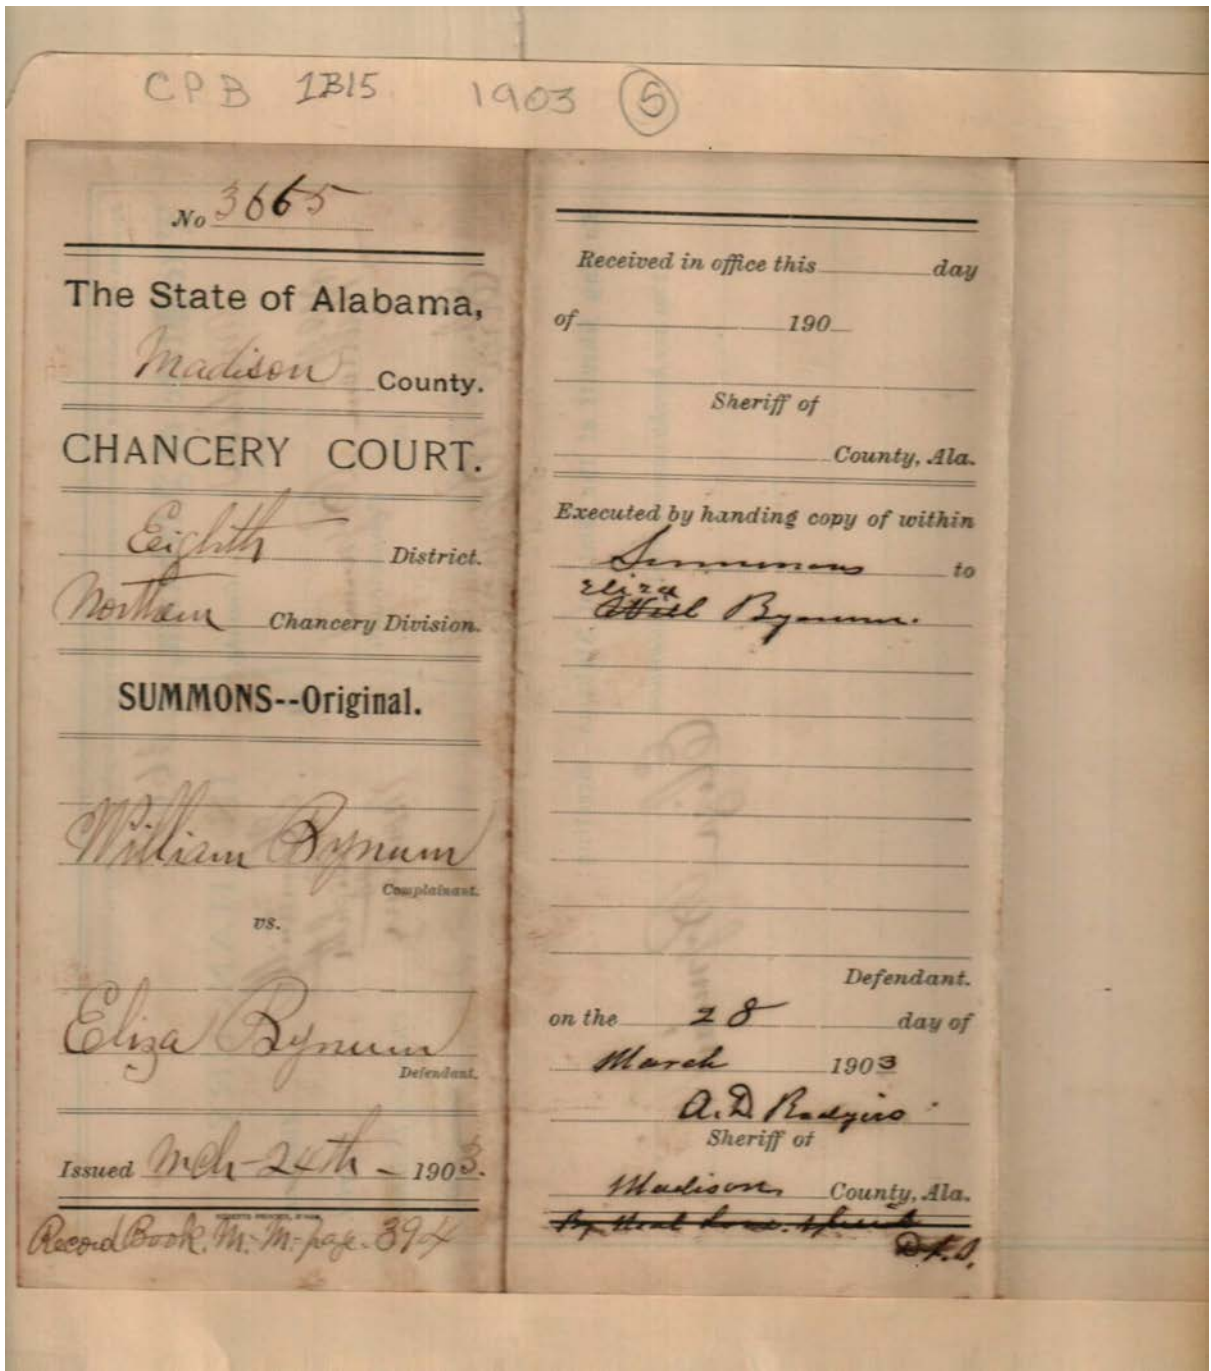 CPB 1B15 1903 5
No 3665
The State of Alabama,
Madison County.
CHANCERY COURT.
Eighth District.
Northern Chancery Division.
SUMMONS--Original.
William Bynum
Complainant.
vs.
Eliza Bynum
Defendant.
Issued Mch-24th-1903.
Record Book. M.M-page-394
Received in office this day
of 190
Sheriff of
County, Ala.
Executed by handing copy of within
Summons to
Eliza
Will Bynum.
Defendant.
on the 28 day of
March 1903
A.D. Rodgers
Sheriff of
Madison County, Ala.
By
D.S.